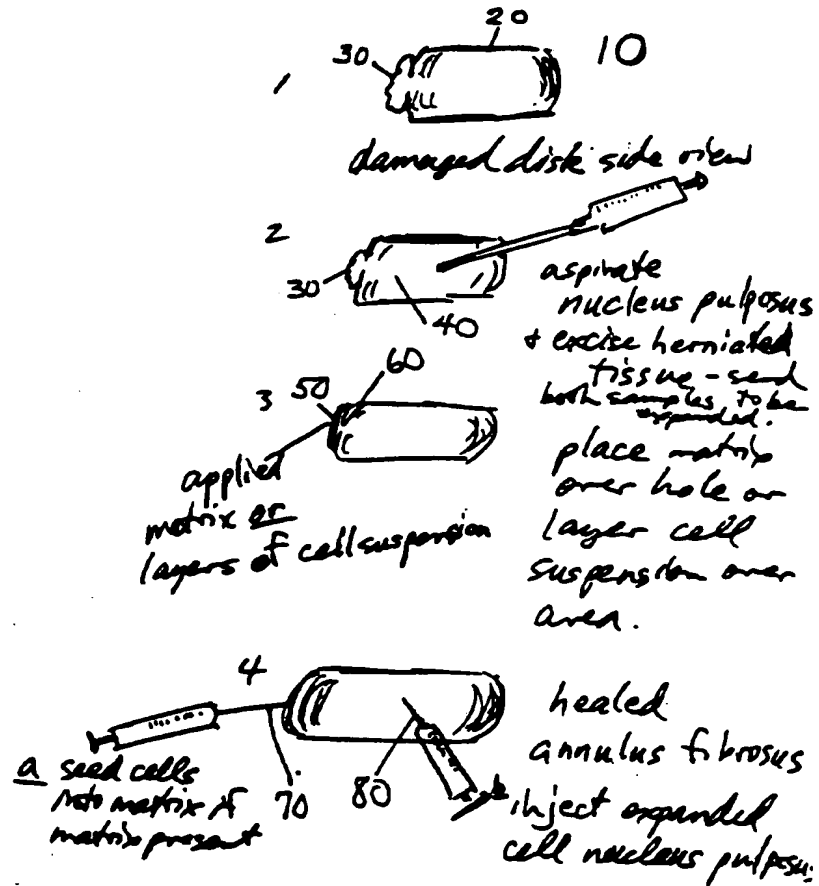 20
30
10
1
damaged disk side view
2
30
40
aspirate
nucleus pulposus
+ excise herniated
tissue - send
both samples to be
expanded.
3
50
60
applied
matrix or
layers of cell suspension
place matrix
over hole or
layer cell
suspension over
area.
4
70
80
a seed cells
into matrix if
matrix present
healed
annulus fibrosus
inject expanded
cell nucleus pulposus.